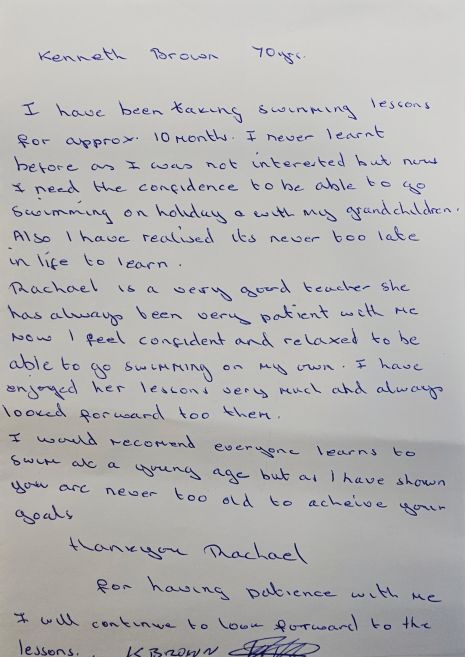 Kenneth Brown 70yrs.
I have been taking swimming lessons
for approx. 10 month. I never learnt
before as I was not interested but now
I need the confidence to be able to go
swimming on holiday & with my grandchildren.
Also I have realised its never too late
in life to learn.
Rachael is a very good teacher she
has always been very patient with me
Now I feel confident and relaxed to be
able to go swimming on my own. I have
enjoyed her lessons very much and always
looked forward too them.
I would recomend everyone learns to
swim at a young age but as I have shown
you are never too old to acheive your
goals
thankyou Rachael
for having patience with me
I will continue to look forward to the
lessons. K BROWN